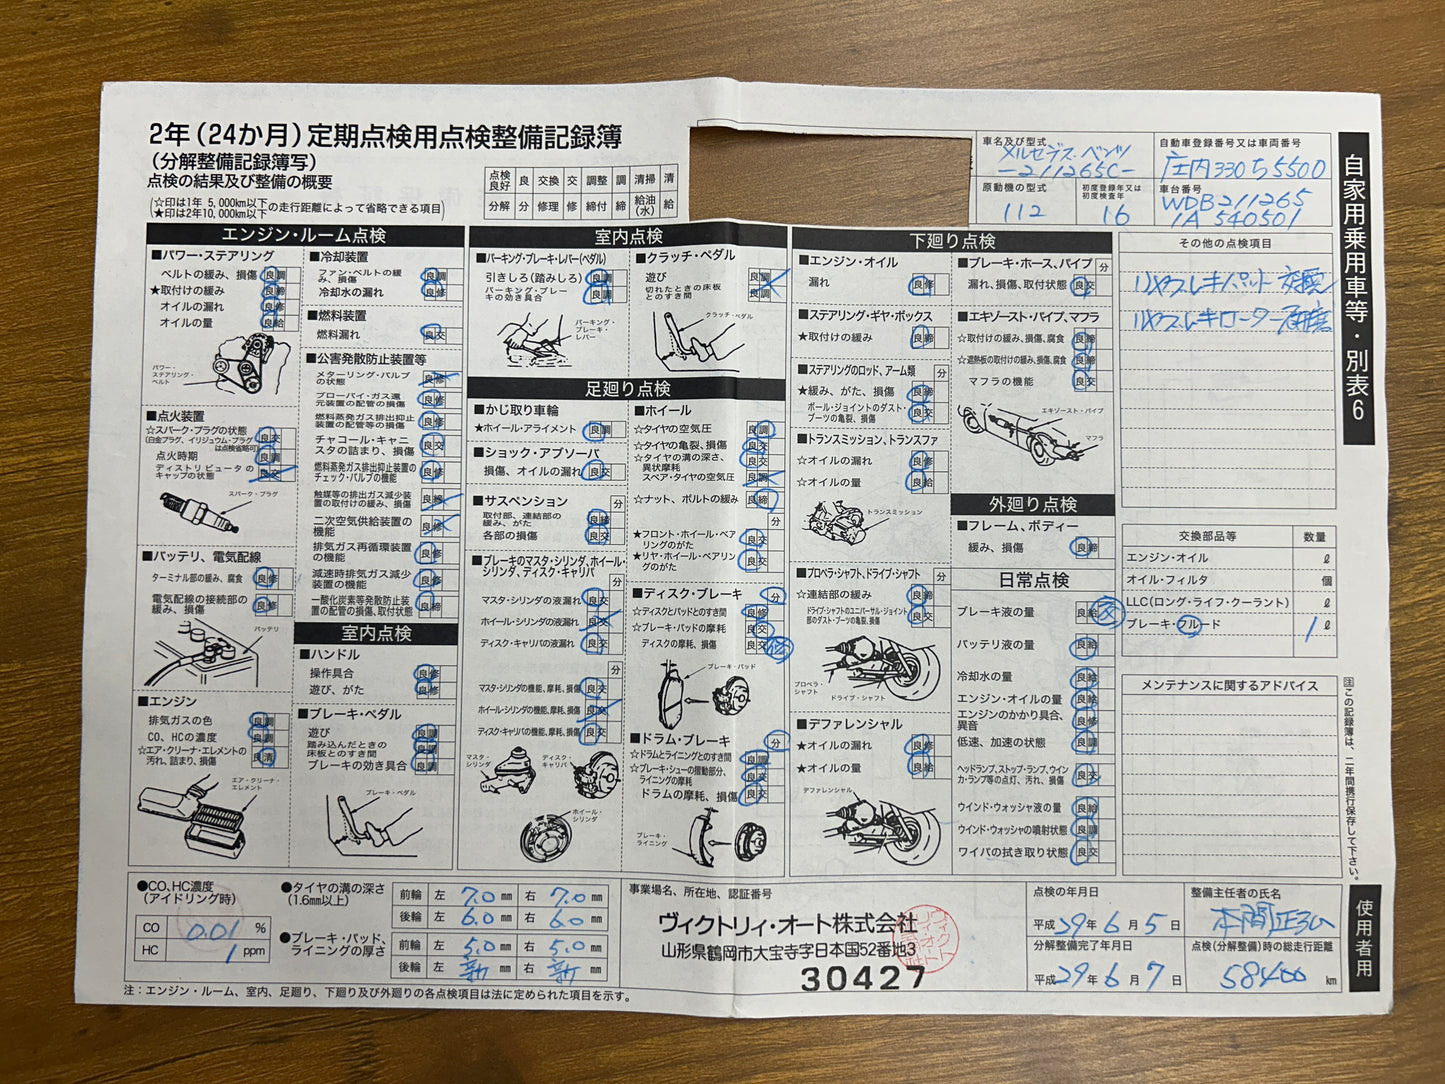 2年(24か月)定期点検用点検整備記録簿
(分解整備記録簿写)
点検の結果及び整備の概要
(☆印は1年 5,000km以下
★印は2年10,000km以下の走行距離によって省略できる項目)
点検良好 良 交換 交 調整 調 清掃 清
分解 分 修理 修 締付 締 給油(水) 給
車名及び型式
メルセデス・ベンツ
-211265C-
自動車登録番号又は車両番号
庄内330ち5500
原動機の型式
112
初度登録年又は初度検査年
16
車台番号
WDB211265
1A540501
自家用乗用車等・別表6
エンジン・ルーム点検
■パワー・ステアリング
ベルトの緩み、損傷 良 調
★取付けの緩み 良 締
オイルの漏れ 良 修
オイルの量 良 給
パワー・ステアリング・ベルト
■点火装置
☆スパーク・プラグの状態
(白金プラグ、イリジュウム・プラグは点検省略可) 良 交
点火時期 良 調
ディストリビュータのキャップの状態 良 交
スパーク・プラグ
■バッテリ、電気配線
ターミナル部の緩み、腐食 良 修
電気配線の接続部の緩み、損傷 良 修
バッテリ
■エンジン
排気ガスの色 良 調
CO、HCの濃度 良 調
☆エア・クリーナ・エレメントの汚れ、詰まり、損傷 良 清
エア・クリーナ・エレメント
■冷却装置
ファン・ベルトの緩み、損傷 良 調
冷却水の漏れ 良 修
■燃料装置
燃料漏れ 良 交
■公害発散防止装置等
メターリング・バルブの状態 良 修
ブローバイ・ガス還元装置の配管の損傷 良 修
燃料蒸発ガス排出抑止装置の配管等の損傷 良 修
チャコール・キャニスタの詰まり、損傷 良 交
燃料蒸発ガス排出抑止装置のチェック・バルブの機能 良 修
触媒等の排出ガス減少装置の取付けの緩み、損傷 良 締
二次空気供給装置の機能 良 修
排気ガス再循環装置の機能 良 修
減速時排気ガス減少装置の機能 良 修
一酸化炭素等発散防止装置の配管の損傷、取付状態 良 修
室内点検
■ハンドル
操作具合 良 修
遊び、がた 良 修
■ブレーキ・ペダル
遊び 良 調
踏み込んだときの床板とのすき間 良 調
ブレーキの効き具合 良 調
ブレーキ・ペダル
室内点検
■パーキング・ブレーキ・レバー(ペダル)
引きしろ(踏みしろ) 良 調
パーキング・ブレーキの効き具合 良 調
パーキング・ブレーキ・レバー
■クラッチ・ペダル
遊び 良 調
切れたときの床板とのすき間 良 調
クラッチ・ペダル
足廻り点検
■かじ取り車輪
★ホイール・アライメント 良 調
■ショック・アブソーバ
損傷、オイルの漏れ 良 交
■サスペンション 分
取付部、連結部の緩み、がた 良 締
各部の損傷 良 交
■ブレーキのマスタ・シリンダ、ホイール・シリンダ、ディスク・キャリパ 分
マスタ・シリンダの液漏れ 良 交
ホイール・シリンダの液漏れ 良 交
ディスク・キャリパの液漏れ 良 交
分
マスタ・シリンダの機能、摩耗、損傷 良 交
ホイール・シリンダの機能、摩耗、損傷 良 交
ディスク・キャリパの機能、摩耗、損傷 良 交
マスタ・シリンダ
ディスク・キャリパ
ホイール・シリンダ
■ホイール
☆タイヤの空気圧 良 調
☆タイヤの亀裂、損傷 良 交
☆タイヤの溝の深さ、異状摩耗 良 交
スペア・タイヤの空気圧 良 調
☆ナット、ボルトの緩み 良 締
分
★フロント・ホイール・ベアリングのがた 良 交
★リヤ・ホイール・ベアリングのがた 良 交
■ディスク・ブレーキ 分
☆ディスクとパッドとのすき間 良 修
☆ブレーキ・パッドの摩耗 良 交
ディスクの摩耗、損傷 良 交 修
ブレーキ・パッド
■ドラム・ブレーキ 分
☆ドラムとライニングとのすき間 良 調
☆ブレーキ・シューの摺動部分、ライニングの摩耗 良 交
ドラムの摩耗、損傷 良 交
ブレーキ・ライニング
下廻り点検
■エンジン・オイル
漏れ 良 修
■ステアリング・ギヤ・ボックス
★取付けの緩み 良 締
■ステアリングのロッド、アーム類 分
★緩み、がた、損傷 良 締
ボール・ジョイントのダスト・ブーツの亀裂、損傷 良 交
■トランスミッション、トランスファ
☆オイルの漏れ 良 修
☆オイルの量 良 給
トランスミッション
■プロペラ・シャフト、ドライブ・シャフト 分
☆連結部の緩み 良 締
ドライブ・シャフトのユニバーサル・ジョイント部のダスト・ブーツの亀裂、損傷 良 交
プロペラ・シャフト
ドライブ・シャフト
■デファレンシャル
★オイルの漏れ 良 修
★オイルの量 良 給
デファレンシャル
■ブレーキ・ホース、パイプ 分
漏れ、損傷、取付状態 良 交
■エキゾースト・パイプ、マフラ
☆取付けの緩み、損傷、腐食 良 締
☆遮熱板の取付けの緩み、損傷、腐食 良 締
マフラの機能 良 交
エキゾースト・パイプ
マフラ
外廻り点検
■フレーム、ボディー
緩み、損傷 良 締
日常点検
ブレーキ液の量 良 給 交
バッテリ液の量 良 給
冷却水の量 良 給
エンジン・オイルの量 良 給
エンジンのかかり具合、異音 良 修
低速、加速の状態 良 調
ヘッドランプ、ストップ・ランプ、ウインカ・ランプ等の点灯、汚れ、損傷 良 交
ウインド・ウォッシャ液の量 良 給
ウインド・ウォッシャの噴射状態 良 調
ワイパの拭き取り状態 良 交
その他の点検項目
リヤブレーキパット 交換
リヤブレーキローター 研磨
交換部品等 数量
エンジン・オイル ℓ
オイル・フィルタ 個
LLC(ロング・ライフ・クーラント) ℓ
ブレーキ・フルード 1 ℓ
メンテナンスに関するアドバイス
注 この記録簿は、二年間携行保存して下さい。
使用者用
●CO、HC濃度
(アイドリング時)
CO 0.01 %
HC 1 ppm
●タイヤの溝の深さ
(1.6mm以上)
前輪 左 7.0 mm 右 7.0 mm
後輪 左 6.0 mm 右 6.0 mm
●ブレーキ・パッド、ライニングの厚さ
前輪 左 5.0 mm 右 5.0 mm
後輪 左 新 mm 右 新 mm
事業場名、所在地、認証番号
ヴィクトリィ・オート株式会社
山形県鶴岡市大宝寺字日本国52番地3
30427
点検の年月日
平成 29 年 6 月 5 日
分解整備完了年月日
平成 29 年 6 月 7 日
整備主任者の氏名
本間正弘
点検(分解整備)時の総走行距離
58400 km
注:エンジン・ルーム、室内、足廻り、下廻り及び外廻りの各点検項目は法に定められた項目を示す。